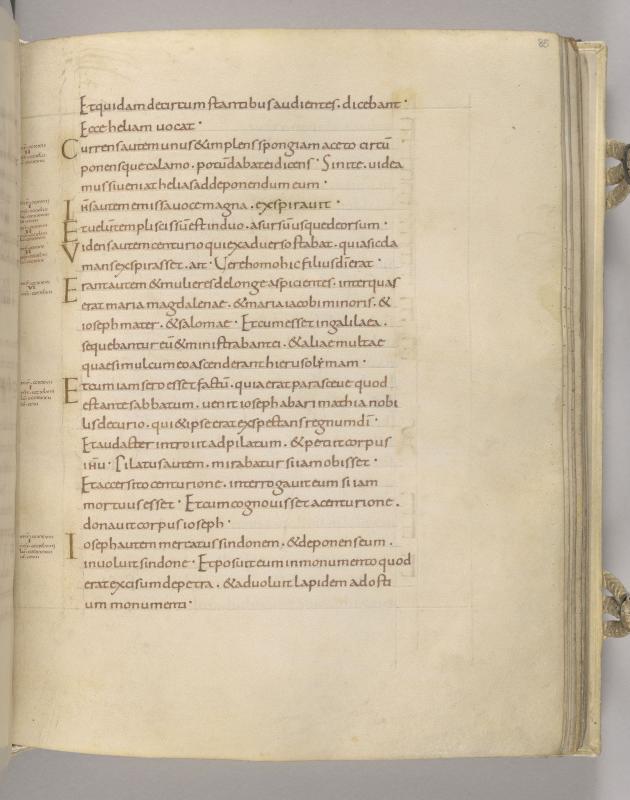 85
Et quidam decircum stantibus audientes. dicebant.
Ecce heliam uocat.
Currens autem unus & implens spongiam aceto circū
ponensque calamo. potū dabat ei dicens. Sinite. uidea
mus si ueniat helias ad deponendum eum.
Ih̄s autem emissa uoce magna. exspirauit.
Et uelū templi scissū est induo. a sursū usque deorsum.
Videns autem centurio qui exaduerso stabat. quia sic cla
mans exspirasset. ait. Uere homo hic filius dī erat.
Erant autem & mulieres delonge aspicientes. inter quas
erat maria magdalenae. & maria iacobi minoris. &
ioseph mater. & salomae. Et cum esset in galilaea.
sequebantur eū & ministrabant ei. & aliae multae
quae simul cum eo ascenderant hierusolymam.
Et cum iam sero esset factū. quia erat parasceue quod
est ante sabbatum. uenit ioseph abarimathia nobi
lis decurio. qui & ipse erat exspectans regnum dī.
Et audacter introiit ad pilatum. & petiit corpus
ih̄u. Pilatus autem. mirabatur si iam obisset.
Et accersito centurione. interrogauit eum si iam
mortuus esset. Et cum cognouisset a centurione.
donauit corpus ioseph.
Ioseph autem mercatus sindonem. & deponens eum.
inuoluit sindone. Et posuit eum in monumento quod
erat excisum de petra. & aduoluit lapidem ad osti
um monumenti.